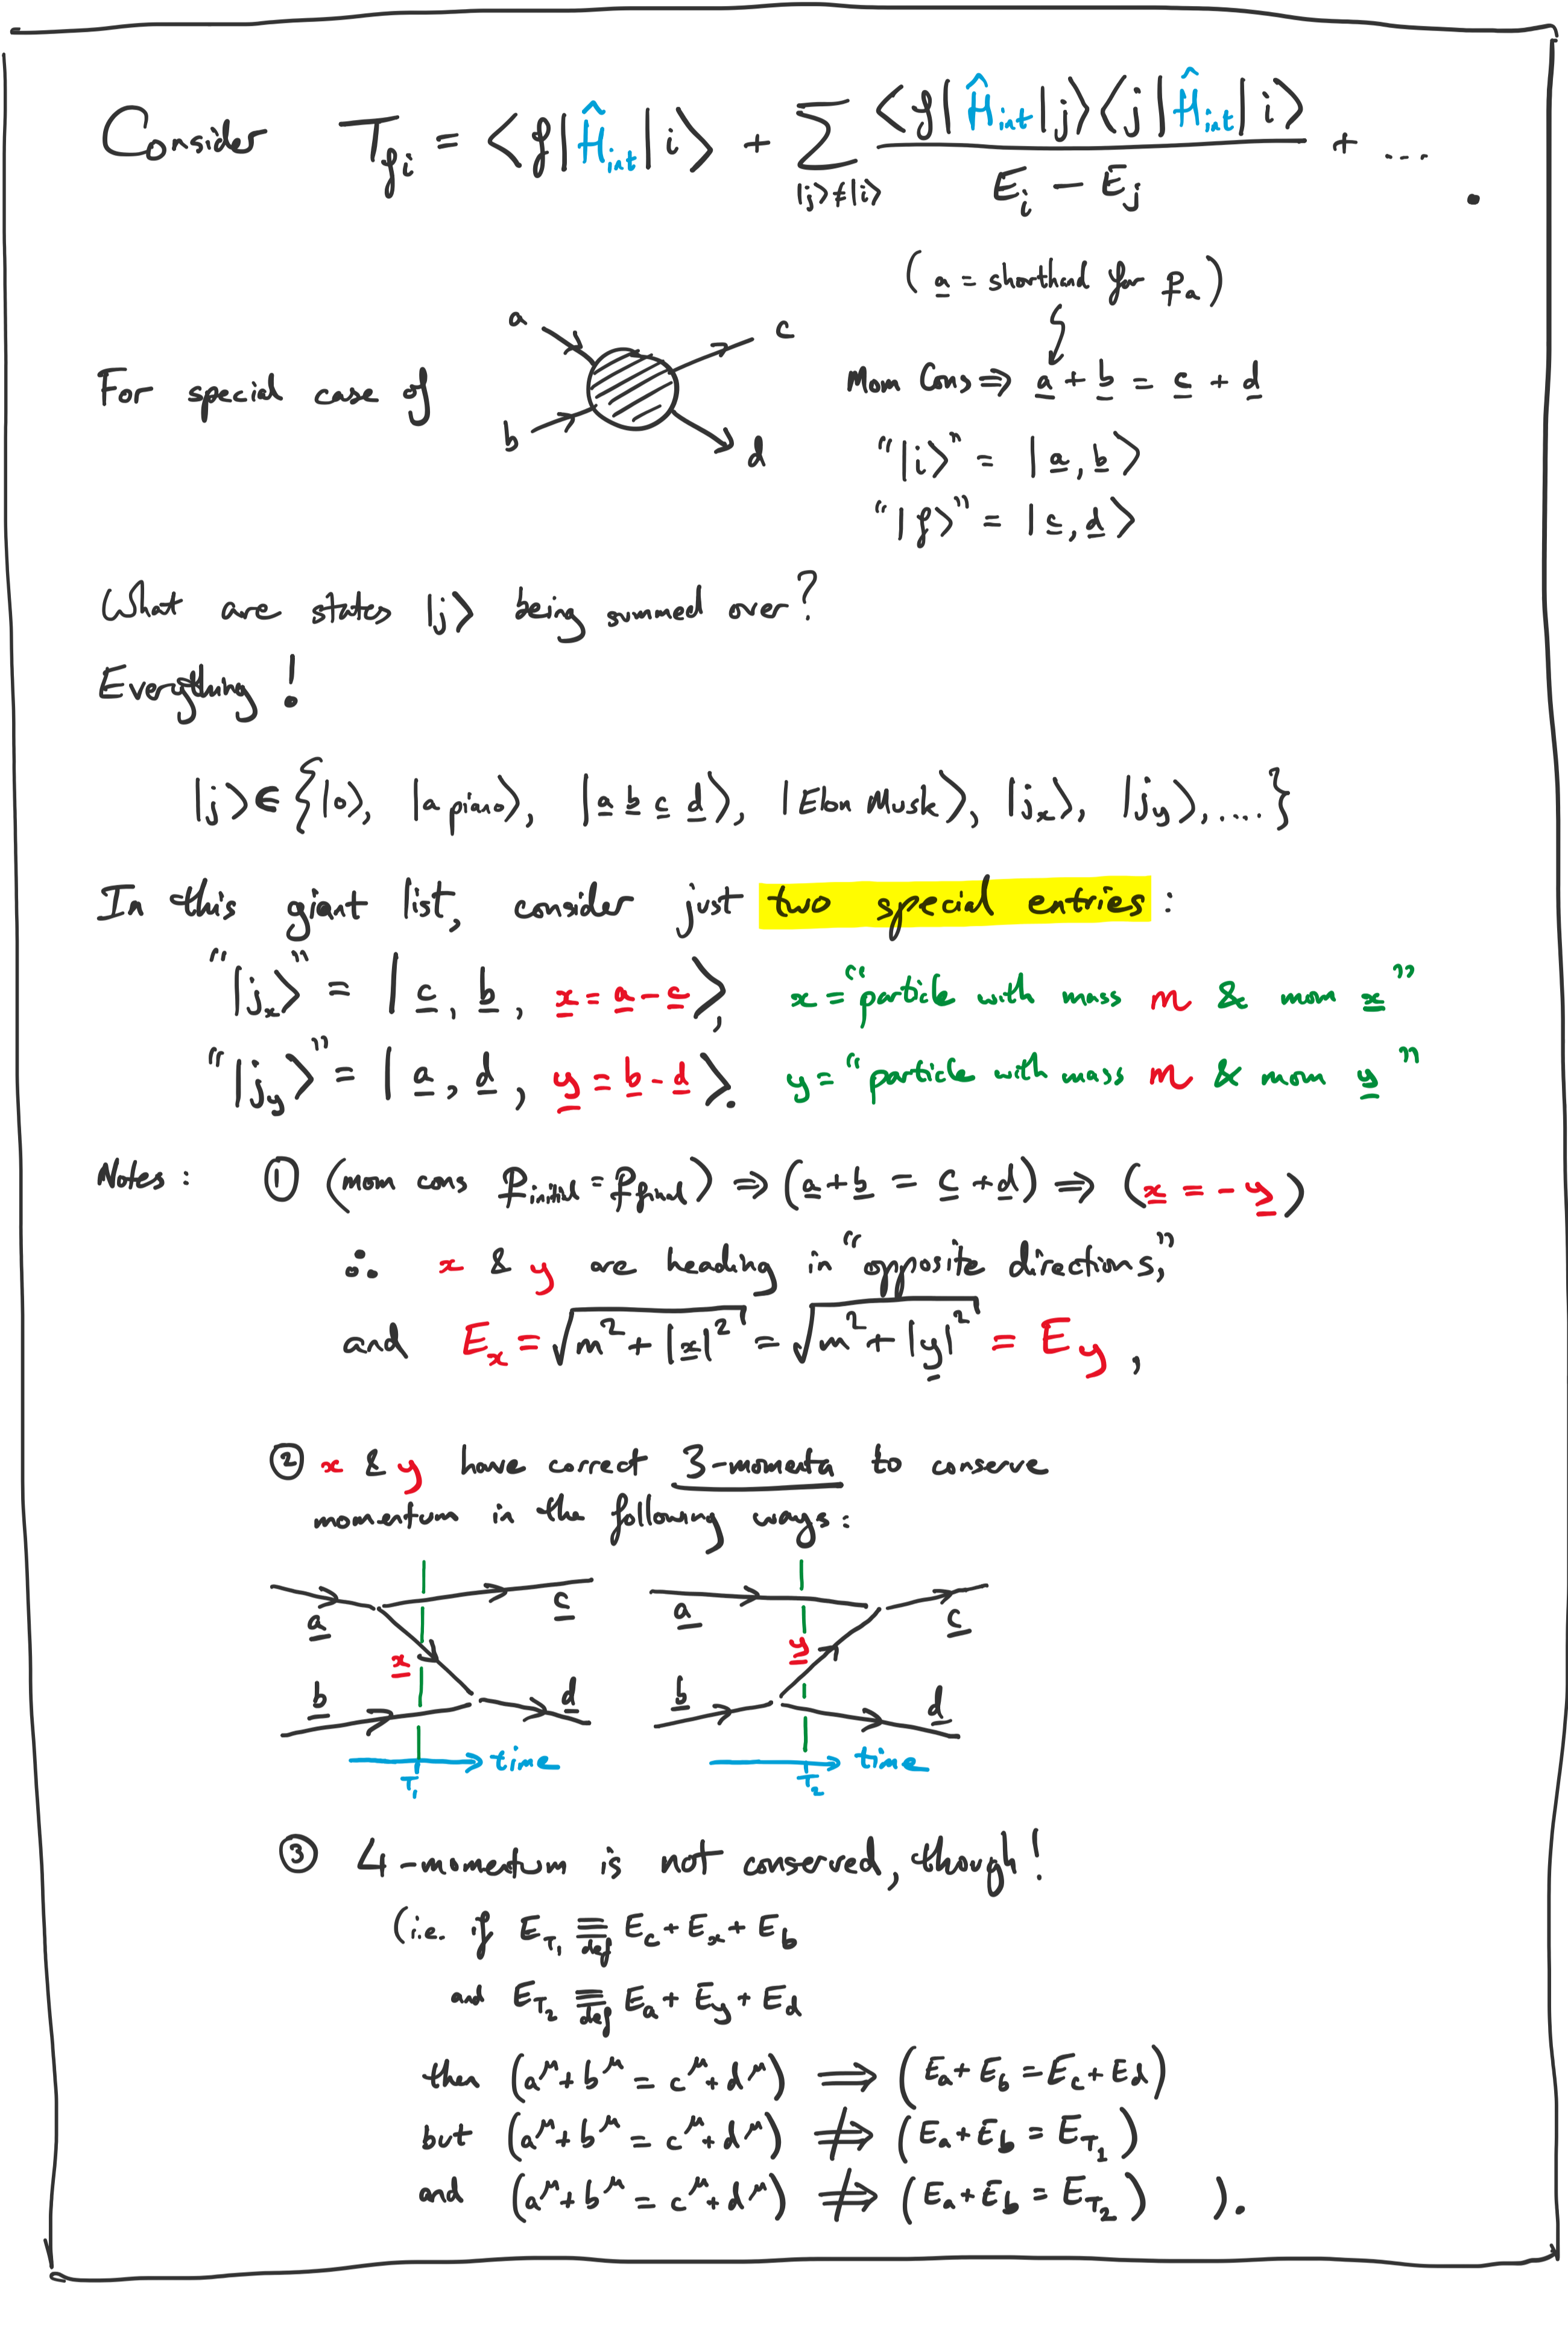 Consider T_fi = <f|Ĥ_int|i> + Σ_{|j>≠|i>} <f|Ĥ_int|j><j|Ĥ_int|i> / (E_i − E_j) + .... .
(a = shorthand for p_a)
a c
For special case of
Mom Cons ⇒ a + b = c + d
b d
"|i>" = |a, b>
"|f>" = |c, d>
What are states |j> being summed over?
Everything!
|j> ∈ {|0>, |a piano>, |a b c d>, |Elon Musk>, |j_x>, |j_y>, .... }
In this giant list, consider just two special entries:
"|j_x>" = |c, b, x = a − c>, x = "particle with mass m & mom x"
"|j_y>" = |a, d, y = b − d>. y = "particle with mass m & mom y"
Notes: ① (mom cons p_initial = p_final) ⇒ (a + b = c + d) ⇒ (x = − y)
∴ x & y are heading in "opposite directions,"
and E_x = √(m² + |x|²) = √(m² + |y|²) = E_y ,
② x & y have correct 3-momenta to conserve
momentum in the following ways:
a c a c
x y
b d b d
T_1 time T_2 time
③ 4-momentum is not conserved, though!
(i.e. if E_T₁ ≡_def E_c + E_x + E_b
and E_T₂ ≡_def E_a + E_y + E_d
then (a^μ + b^μ = c^μ + d^μ) ⟹ (E_a + E_b = E_c + E_d)
but (a^μ + b^μ = c^μ + d^μ) ⇏ (E_a + E_b = E_T₁)
and (a^μ + b^μ = c^μ + d^μ) ⇏ (E_a + E_b = E_T₂) ).